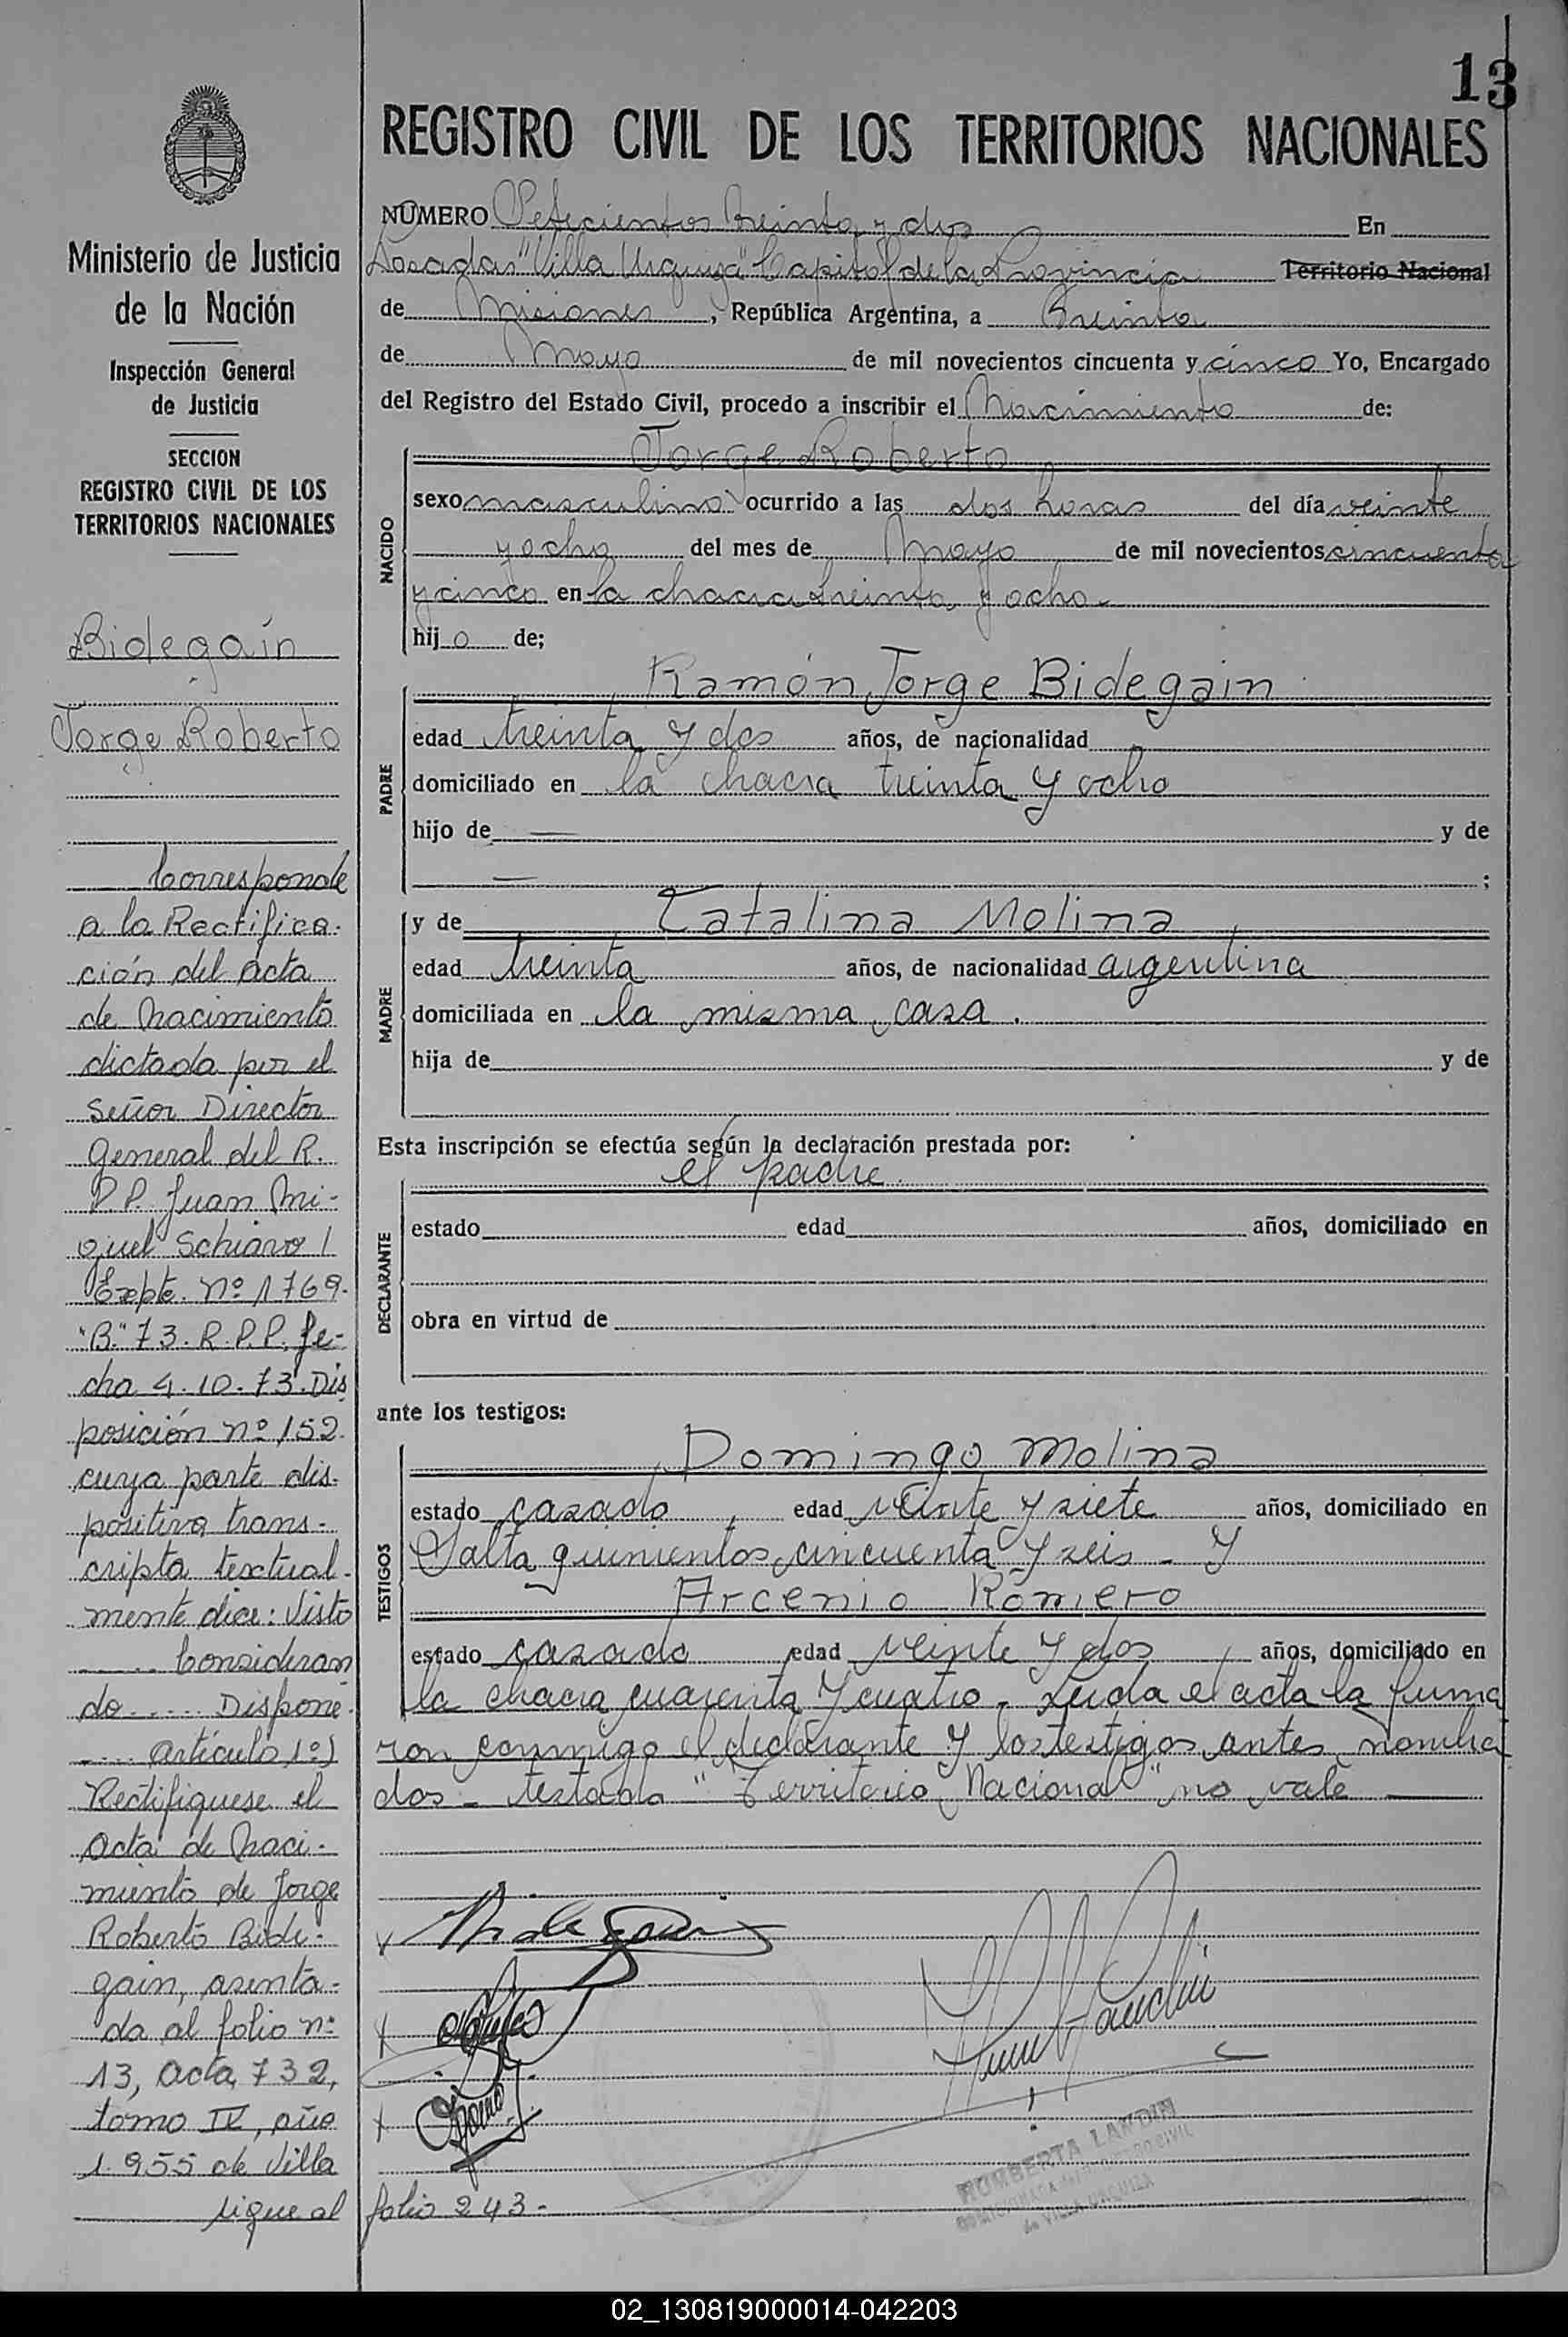 13
REGISTRO CIVIL DE LOS TERRITORIOS NACIONALES
NÚMERO Setecientos treinta y dos En
Posadas "Villa Urquiza" Capital de la Provincia Territorio Nacional
de Misiones, República Argentina, a treinta
de Mayo de mil novecientos cincuenta y cinco Yo, Encargado
del Registro del Estado Civil, procedo a inscribir el Nacimiento de:
NACIDO
Jorge Roberto
sexo masculino ocurrido a las dos horas del día veinte
y ocho del mes de Mayo de mil novecientos cincuenta
y cinco en la chacra treinta y ocho.-
hijo de;
PADRE
Ramón Jorge Bidegain
edad treinta y dos años, de nacionalidad
domiciliado en la chacra treinta y ocho
hijo de — y de
— ;
MADRE
y de Catalina Molina
edad treinta años, de nacionalidad argentina
domiciliada en la misma casa.
hija de y de
Esta inscripción se efectúa según la declaración prestada por:
DECLARANTE
el padre.
estado edad años, domiciliado en
obra en virtud de
ante los testigos:
TESTIGOS
Domingo Molina
estado casado edad veinte y siete años, domiciliado en
Salta quinientos cincuenta y seis - y
Arcenio Romero
estado casado edad veinte y dos años, domiciliado en
la chacra cuarenta y cuatro. Leida el acta la firma
ron conmigo el declarante y los testigos antes nombra
dos - testado "Territorio Nacional" no vale —
Bidegain
ROMBERTA LANDIN
de VILLA URQUIZA
Ministerio de Justicia
de la Nación
Inspección General
de Justicia
SECCION
REGISTRO CIVIL DE LOS
TERRITORIOS NACIONALES
Bidegain
Jorge Roberto
Corresponde
a la Rectifica-
ción del acta
de nacimiento
dictada por el
Señor Director
General del R.
P.P. Juan Mi-
guel Schiavo /
Expte. nº 1769-
"B." 73. R.P.P. fe-
cha 4.10.73. Dis
posición nº 152
cuya parte dis-
positiva trans-
cripta textual-
mente dice: Visto
..... Consideran
do ..... Dispone-
.... artículo 1º)
Rectifíquese el
acta de naci-
miento de Jorge
Roberto Bide-
gain, asenta-
da al folio nº
13, acta 732,
tomo IV, año
1.955 de Villa
sigue al folio 243-
02_130819000014-042203